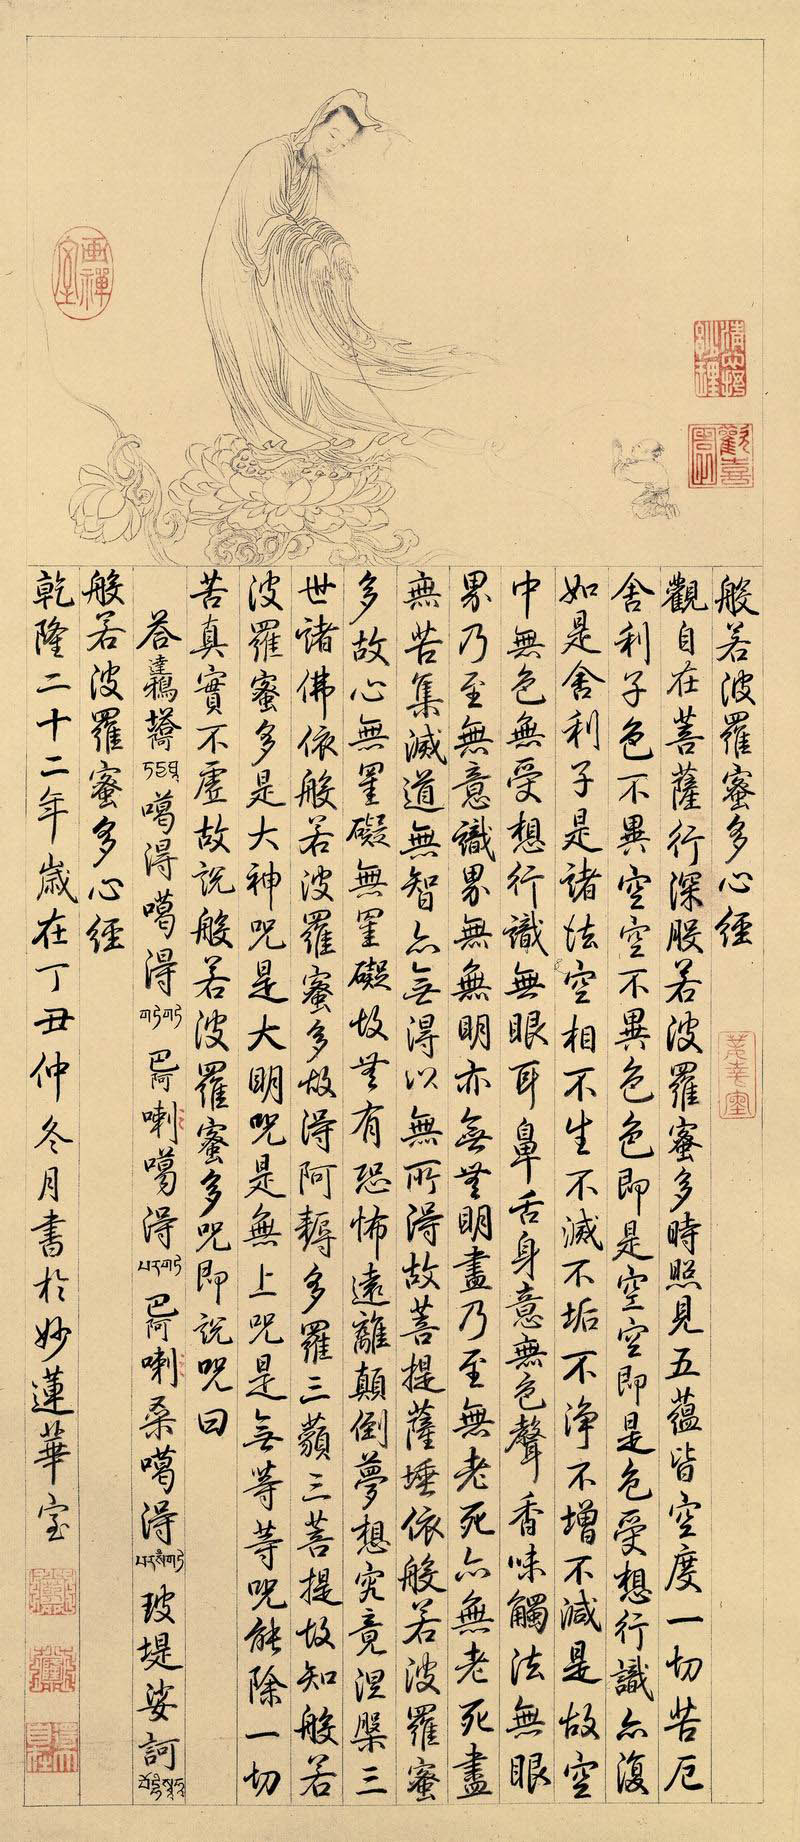 畫禪室
般若波羅蜜多心經
觀自在菩薩行深般若波羅蜜多時照見五蘊皆空度一切苦厄
舍利子色不異空空不異色色即是空空即是色受想行識亦復
如是舍利子是諸法空相不生不滅不垢不淨不增不減是故空
中無色無受想行識無眼耳鼻舌身意無色聲香味觸法無眼
界乃至無意識界無無明亦無無明盡乃至無老死亦無老死盡
無苦集滅道無智亦無得以無所得故菩提薩埵依般若波羅蜜
多故心無罣礙無罣礙故無有恐怖遠離顛倒夢想究竟涅槃三
世諸佛依般若波羅蜜多故得阿耨多羅三藐三菩提故知般若
波羅蜜多是大神咒是大明咒是無上咒是無等等咒能除一切
苦真實不虛故說般若波羅蜜多咒即說咒曰
答達鴉噶得噶得 གཏེགཏེ 巴阿喇噶得 པཱརགཏེ 巴阿喇桑噶得 པཱརསཾགཏེ 玻堤娑訶
般若波羅蜜多心經
乾隆二十二年歲在丁丑仲冬月書於妙蓮華室